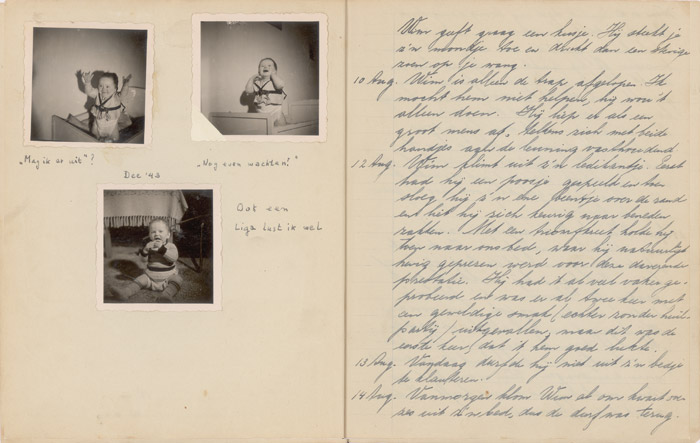 „Mag ik er uit"?
„Nog even wachten!"
Dec '43
Ook een
Liga lust ik wel
Wim geeft graag een kusje. Hij steekt je
z'n mondje toe en drukt dan een stevige
zoen op je wang.
10 Aug. Wim is alleen de trap afgelopen. Ik
mocht hem niet helpen, hij wou 't
alleen doen. Hij liep er als een
groot mens af, telkens zich met beide
handjes aan de leuning vasthoudend
12 Aug. Wim klimt uit z'n ledikantje. Eerst
had hij een poosje gespeeld en toen
sloeg hij z'n ene beentje over de rand
en liet hij zich keurig naar beneden
zakken. Met een triomfkreet holde hij
toen naar ons bed, waar hij natuurlijk
hevig geprezen werd voor deze daverende
prestatie. Hij had 't al veel vaker ge-
probeerd en was er al twee keer met
een geweldige smak (echter zonder huil-
partij) uitgevallen, maar dit was de
eerste keer, dat 't hem goed lukte.
13 Aug. Vandaag durfde hij niet uit z'n bedje
te klauteren.
14 Aug. Vanmorgen klom Wim al om kwart voor
zes uit z'n bed, dus de durf was terug.